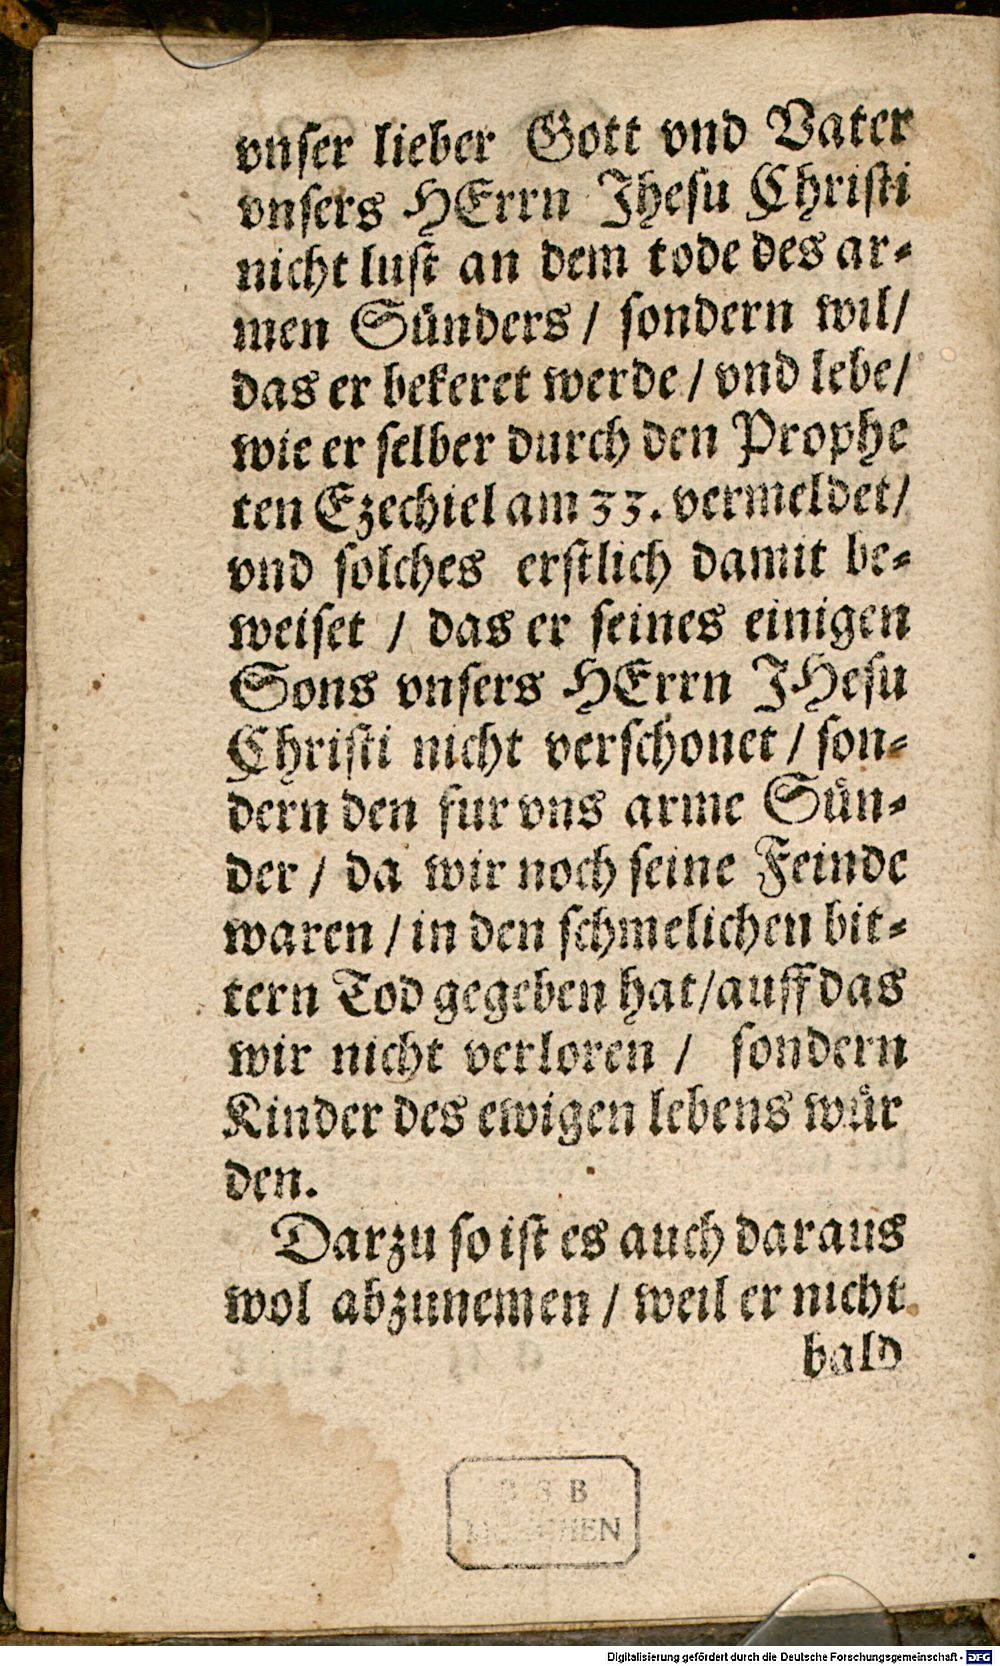 vnser lieber Gott vnd Vater
vnsers HErrn Jhesu Christi
nicht lust an dem tode des ar⸗
men Sünders / sondern wil/
das er bekeret werde / vnd lebe/
wie er selber durch den Prophe
ten Ezechiel am 33. vermeldet/
vnd solches erstlich damit be⸗
weiset / das er seines einigen
Sons vnsers HErrn JHesu
Christi nicht verschonet / son⸗
dern den fur vns arme Sün⸗
der / da wir noch seine Feinde
waren / in den schmelichen bit⸗
tern Tod gegeben hat/auff das
wir nicht verloren / sondern
Kinder des ewigen lebens wür
den.
Darzu so ist es auch daraus
wol abzunemen / weil er nicht
bald
B S B
MÜNCHEN
Digitalisierung gefördert durch die Deutsche Forschungsgemeinschaft - DFG